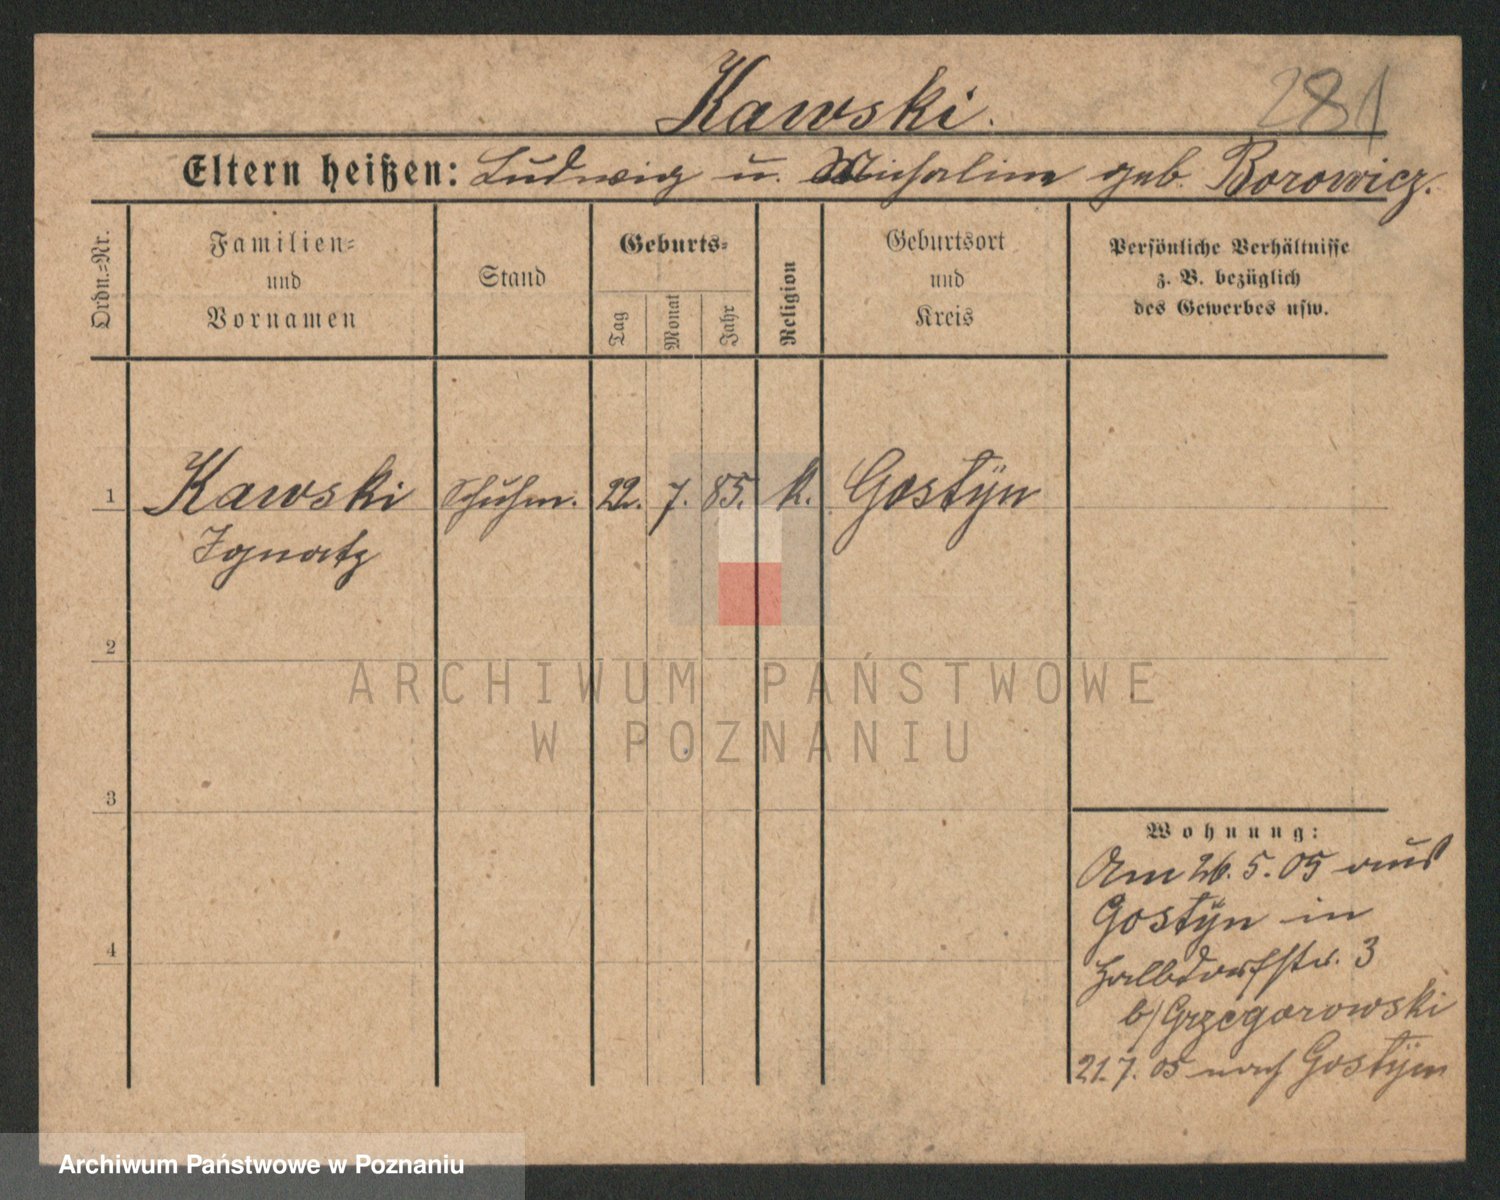 Kawski.
281
Eltern heißen: Ludwig u. Michalina geb. Borowicz.
Ordn.=Nr.
Familien=
und
Vornamen
Stand
Geburts=
Tag
Monat
Jahr
Religion
Geburtsort
und
Kreis
Persönliche Verhältnisse
z. B. bezüglich
des Gewerbes usw.
1 Kawski Schuhm. 22. 7. 85. k. Gostÿn
Ignatz
2
3
4
Wohnung:
Am 26. 5. 05 aus
Gostÿn in
Halbdorfstr. 3
b/ Grzegorowski
21. 7. 05 nach Gostÿn
ARCHIWUM PAŃSTWOWE
W POZNANIU
Archiwum Państwowe w Poznaniu